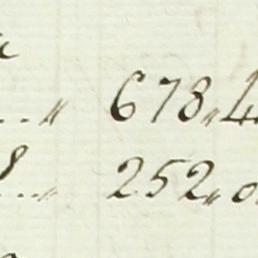 ..." 678,4
8..." 252,0